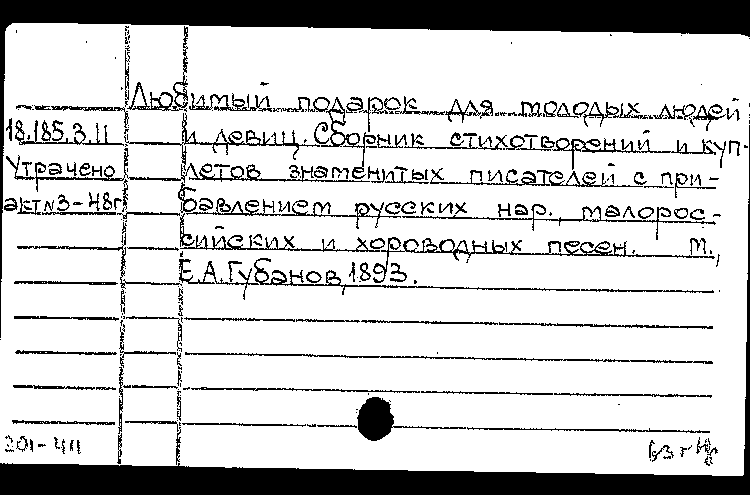 Любимый подарок для молодых людей
18.185.3.11 и девиц. Сборник стихотворений и куп-
Утрачено летов знаменитых писателей с при-
акт№3-48г бавлением русских нар., малорос-
сийских и хороводных песен. М.,
Е.А.Губанов, 1893.
201-411